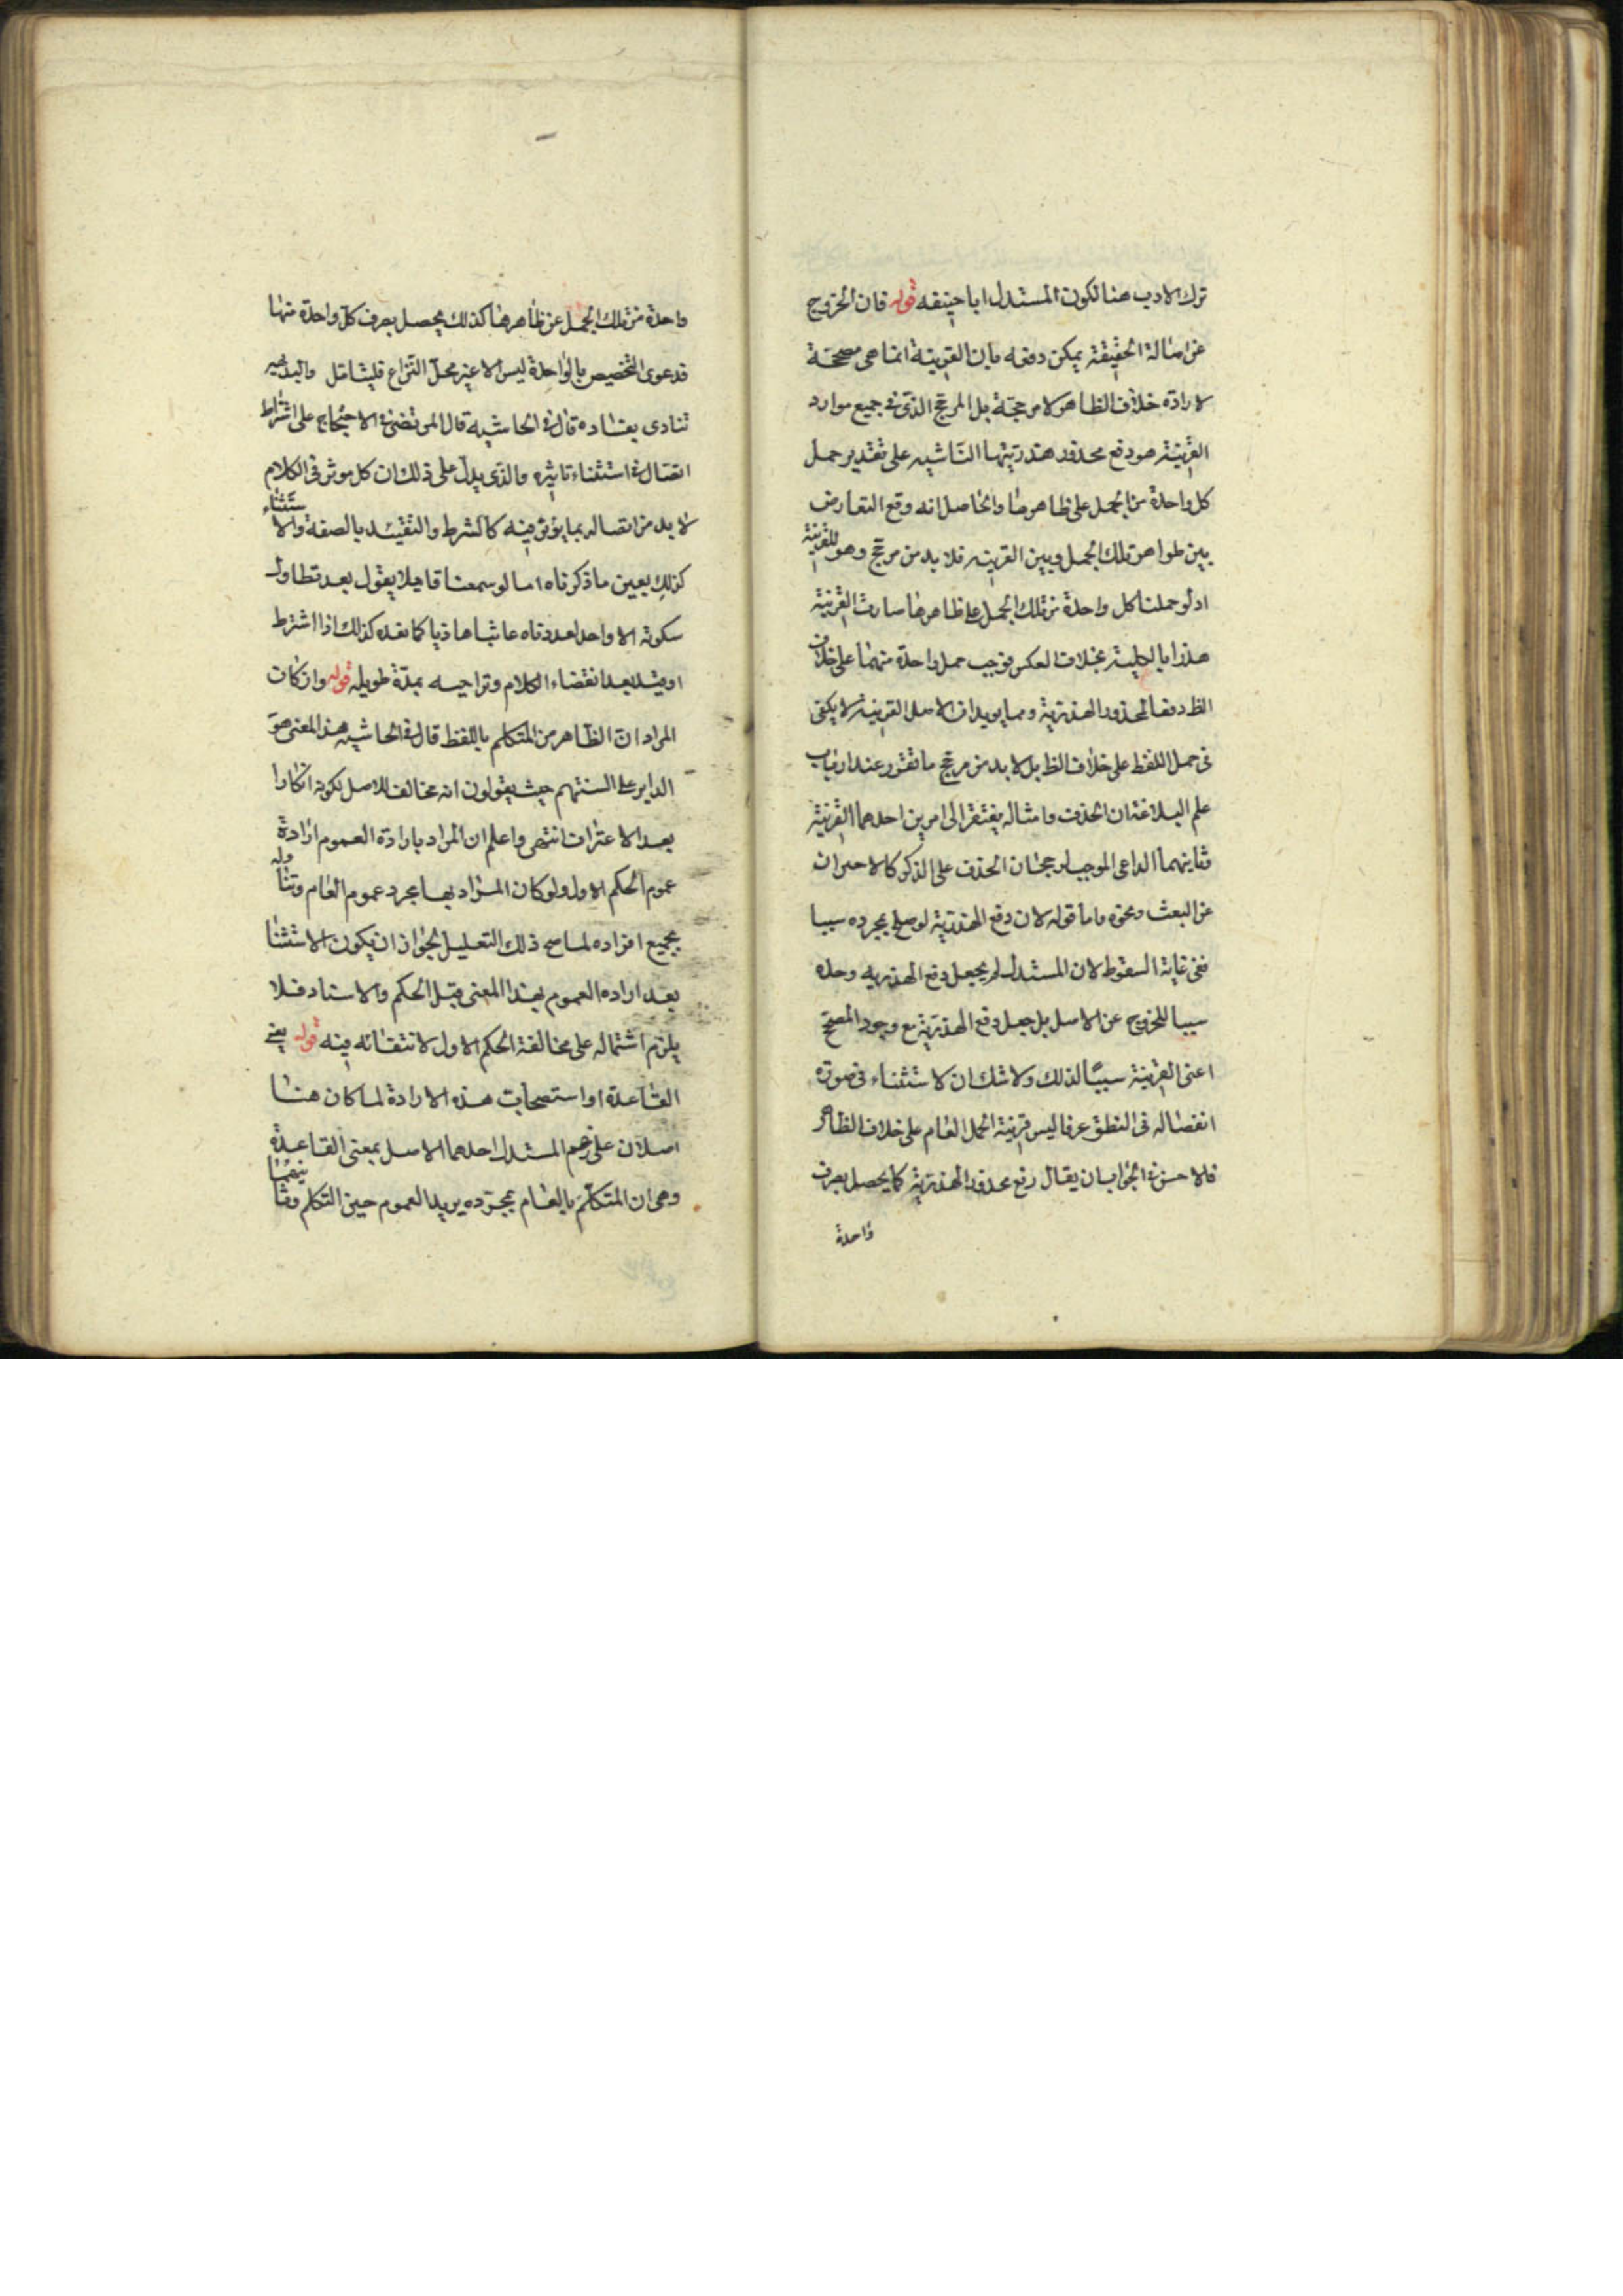 ترك الادب هنا لكون المستدل ابا حنيفه قوله فان الخروج
عن اصالة الحقيقة يمكن دفعه بان القرينة انما هى مصححة
لارادة خلاف الظاهر لا مرجحة بل المرجح الذى فى جميع موارد
القرينة هو دفع محذور هذريتها الناشيه على تقدير حمل
كل واحدة من الجمل على ظاهرها والحاصل انه وقع التعارض
بين ظواهر تلك الجمل وبين القرينه فلا بد من مرجح وهو للقرينة
اذ لو حملنا كل واحدة من تلك الجمل على ظاهرها صارت القرينة
هذرا بالكلية بخلاف العكس فوجب حمل واحدة منهما على خلاف
الظ دفعا لمحذور الهذرية ومما يويد ان الاصل القرينة لا يكفى
فى حمل اللفظ على خلاف الظ بل لا بد من مرجح ما تقرر عند ارباب
علم البلاغة ان الحذف وامثاله يفتقر الى امرين احدهما القرينة
وثانيهما الداعى الموجب لرجحان الحذف على الذكر كالاحتراز
عن البعث ونحوه واما قوله لان دفع الهذرية لو صلح بمجرده سببا
ففى غاية السقوط لان المستدل لم يجعل دفع الهذريه وحده
سببا للخروج عن الاصل بل جعل دفع الهذرية مع وجود المصحح
اعنى القرينة سببا لذلك ولا شك ان لاستثناء فى صورة
انفصاله فى النطق عرفا ليس قرينة لحمل العام على خلاف الظاهر
فلاحسن فى الجواب ان يقال رفع محذور الهذرية كما يحصل بصرف
واحدة
واحدة من تلك الجمل عن ظاهرها كذلك يحصل بصرف كل واحدة منها
فدعوى التخصيص بالواحدة ليس الا عين محل النزاع فليتامل والبديهه
تنادى بفساده قال فى الحاشيه قال المرتضى فى الاحتجاج على اشتراط
اتصال فى استثناء تاثيره والذى يدل على ذلك ان كل موثر فى الكلام
لا بد من اتصاله بما يؤثر فيه كالشرط والتقييد بالصفة والاستثناء
كذلك يعين ما ذكرناه اما لو سمعنا قايلا يقول بعد تطاول
سكوته الا واحد لعددناه عابثا هاذيا كما نعده كذلك اذا اشترط
او قيد بعد انقضاء الكلام وتراخيه بمدة طويله قوله وان كان
المراد ان الظاهر من المتكلم باللفظ قال فى الحاشيه هذا المعنى هو
الداير على السنتهم حيث يقولون انه مخالف للاصل لكونه انكارا
بعد الاعتراف انتهى واعلم ان المراد بارادة العموم ارادة
عموم الحكم الاول ولو كان المراد بها مجرد عموم العام وتناوله
بجميع افراده لما صح ذلك التعليل لجواز ان يكون الاستثنا
بعد اراده العموم بهذا المعنى قبل الحكم والاسناد فلا
يلزم اشتماله على مخالفة الحكم الاول لانتفائه فيه قوله يعنى
القاعدة او استصحاب هذه الارادة لما كان هنا
اصلان على زعم المستدل احدهما الاصل بمعنى القاعدة
وهى ان المتكلم بالعام بمجرده يريد العموم حين التكلم وثانيهما